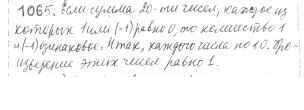 1065. Если сумма 20-ти чисел, каждое из
которых 1 или (-1) равно 0, то количество 1
и (-1) одинаковы. Итак, каждого числа по 10. Про-
изведение этих чисел равно 1.